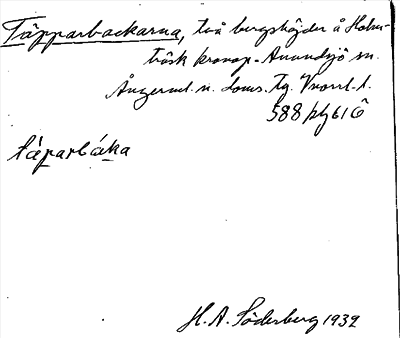 Täpparbackarna, två bergshöjder å Holm-
träsk kronop. Anundsjö sn.
Ångerml. n. Doms. Tg. Vnorrl. l.
588
tä́parbáka
H. A. Söderberg 1932